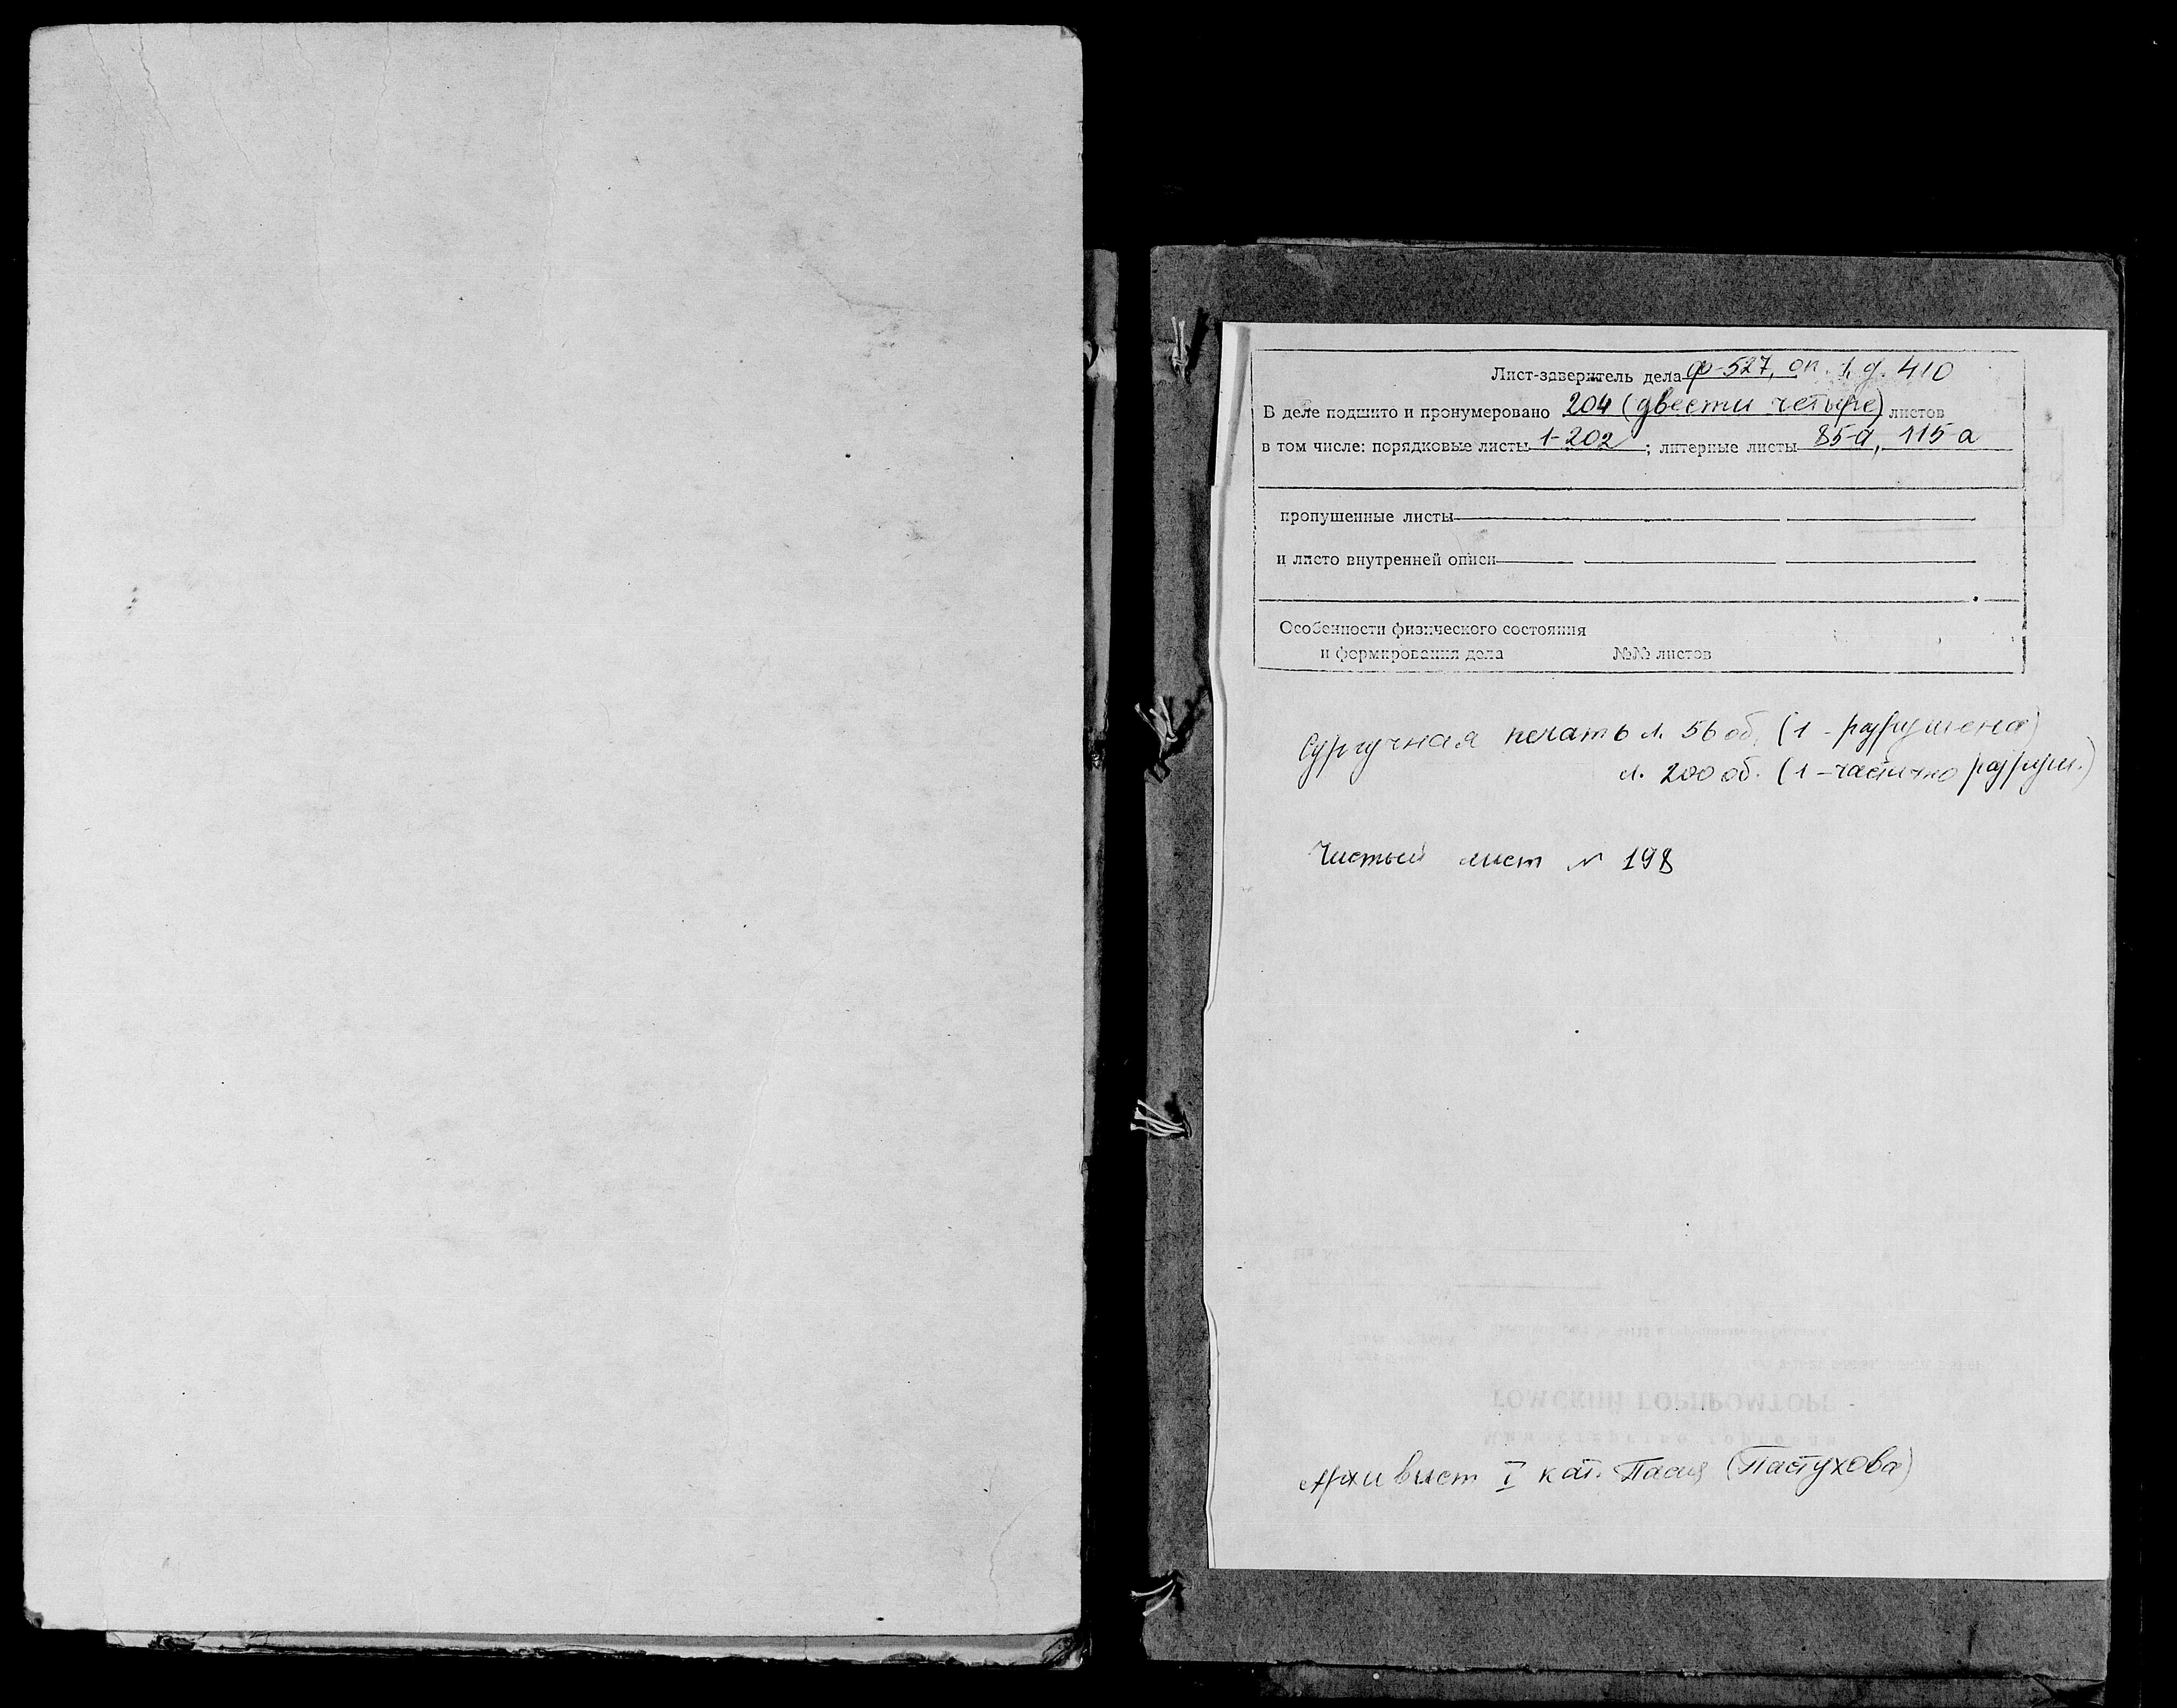 Лист-заверитель дела ф-527, оп. 1, д. 410
В деле подшито и пронумеровано 204 (двести четыре) листов
в том числе: порядковые листы 1-202; литерные листы 85-а, 115-а
пропущенные листы
и листо внутренней описи
Особенности физического состояния
и формирования дела №№ листов
Сургучная печать л. 56 об. (1 - разрушена)
л. 200 об. (1 - частично разруш.)
Чистый лист № 198
ТОМСКИЙ ГОРПРОМТОРГ
Министерство торговли
Архивист I кат. (Пастухова)